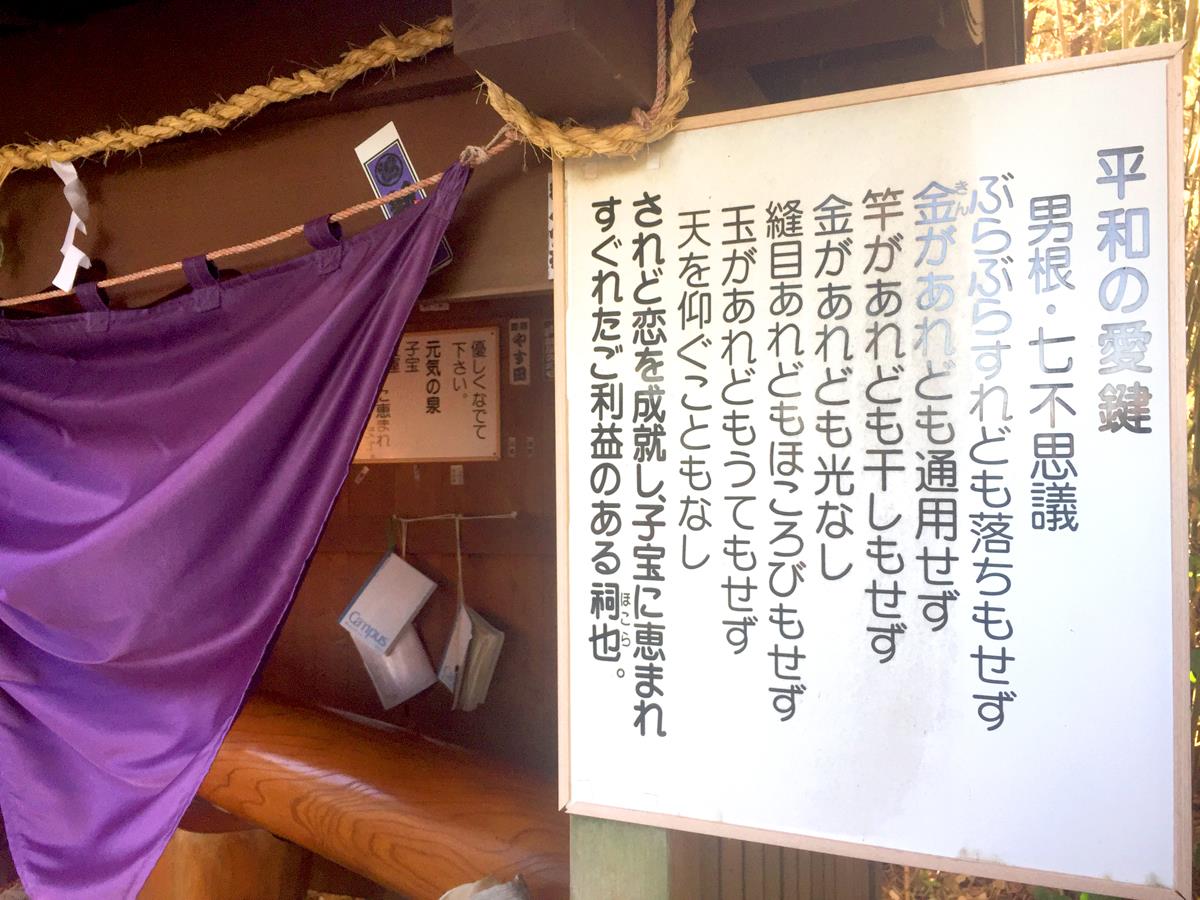 平和の愛鍵
男根・七不思議
ぶらぶらすれども落ちもせず
金があれども通用せず
きん
竿があれども干しもせず
金があれども光なし
縫目あれどもほころびもせず
玉があれどもうてもせず
天を仰ぐこともなし
されど恋を成就し、子宝に恵まれ
すぐれたご利益のある祠也。
ほこら
優しくなでて
下さい。
元気の泉
子宝
に恵まれ
やす田
Campus